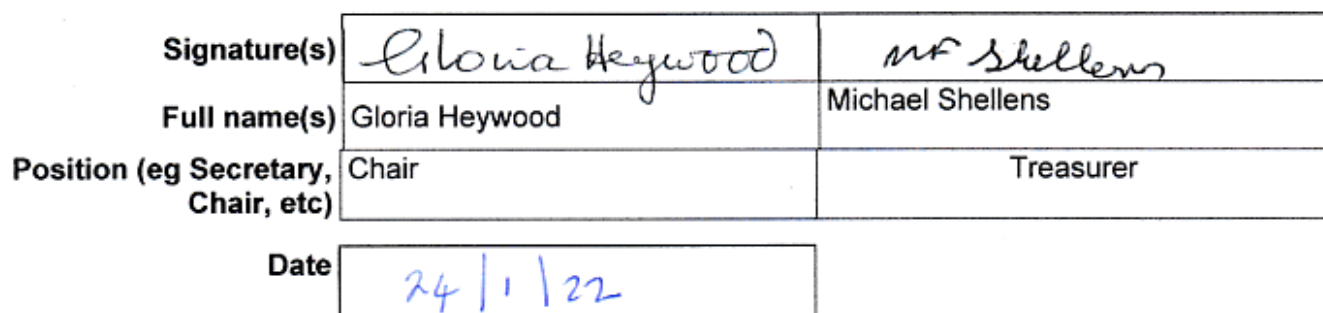 Signature(s) Gloria Heywood MF Shellens
Full name(s) Gloria Heywood Michael Shellens
Position (eg Secretary, Chair Treasurer
Chair, etc)
Date 24/1/22